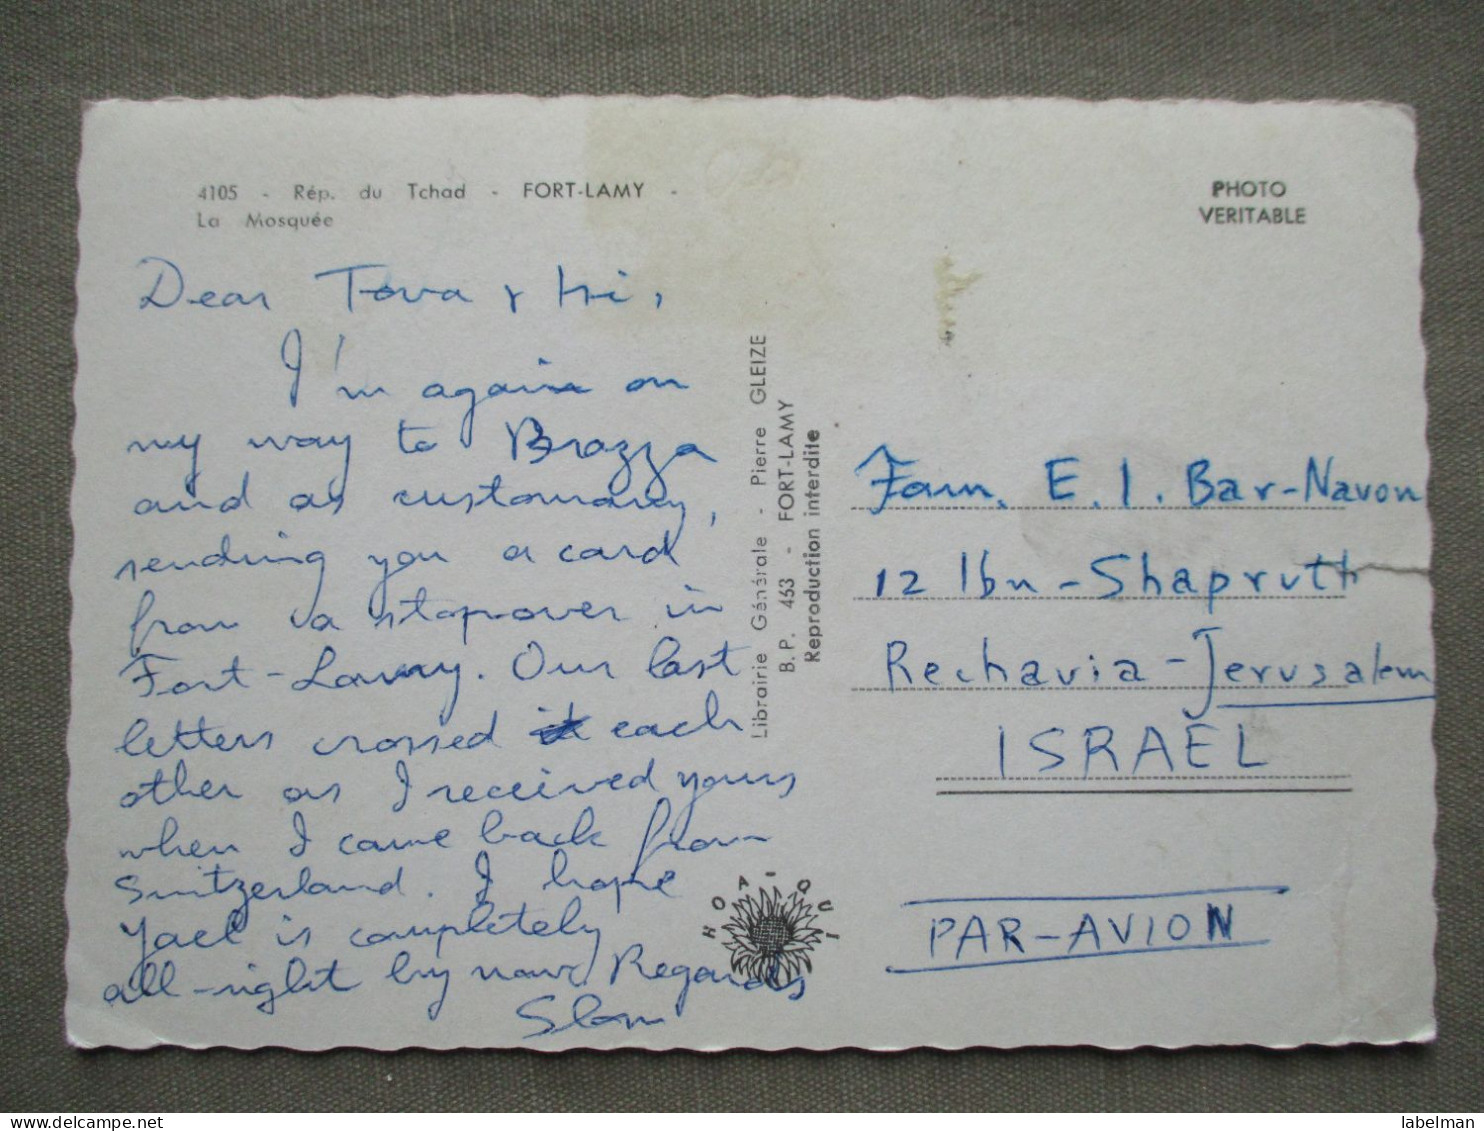 4105 - Rép. du Tchad - FORT-LAMY -
La Mosquée
PHOTO
VERITABLE
Dear Tova &
I'm again on
my way to Brazza
and as customary,
sending you a card
from a stopover in
Fort-Lamy. Our last
letters crossed each
other as I received yours
when I came back from
Switzerland. I hope
Yael is completely
all-right by now. Regards
Librairie Générale - Pierre GLEIZE
B. P. 463 - FORT-LAMY
Reproduction interdite
HOA-QUI
Fam. E. I. Bar-Navon
12 Ibn-Shapruth
Rechavia-Jerusalem
ISRAEL
PAR-AVION
www.delcampe.net
labelman